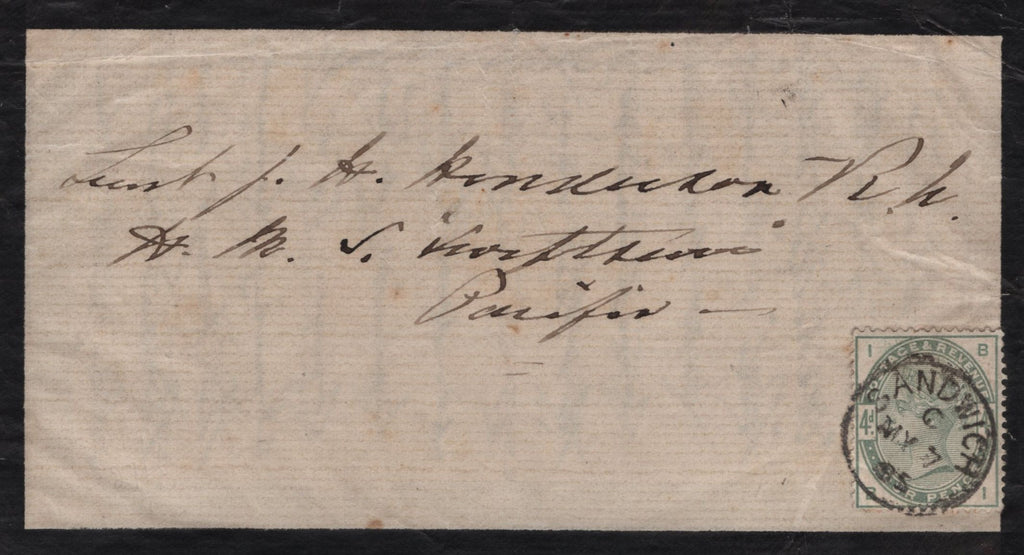 Lieut J. H. Henderson R.N.
H. M. S. "Swiftsure"
Pacific —
I B
POSTAGE & REVENUE
4d.
FOUR PENCE
B I
SANDWICH
C
MY 7
85